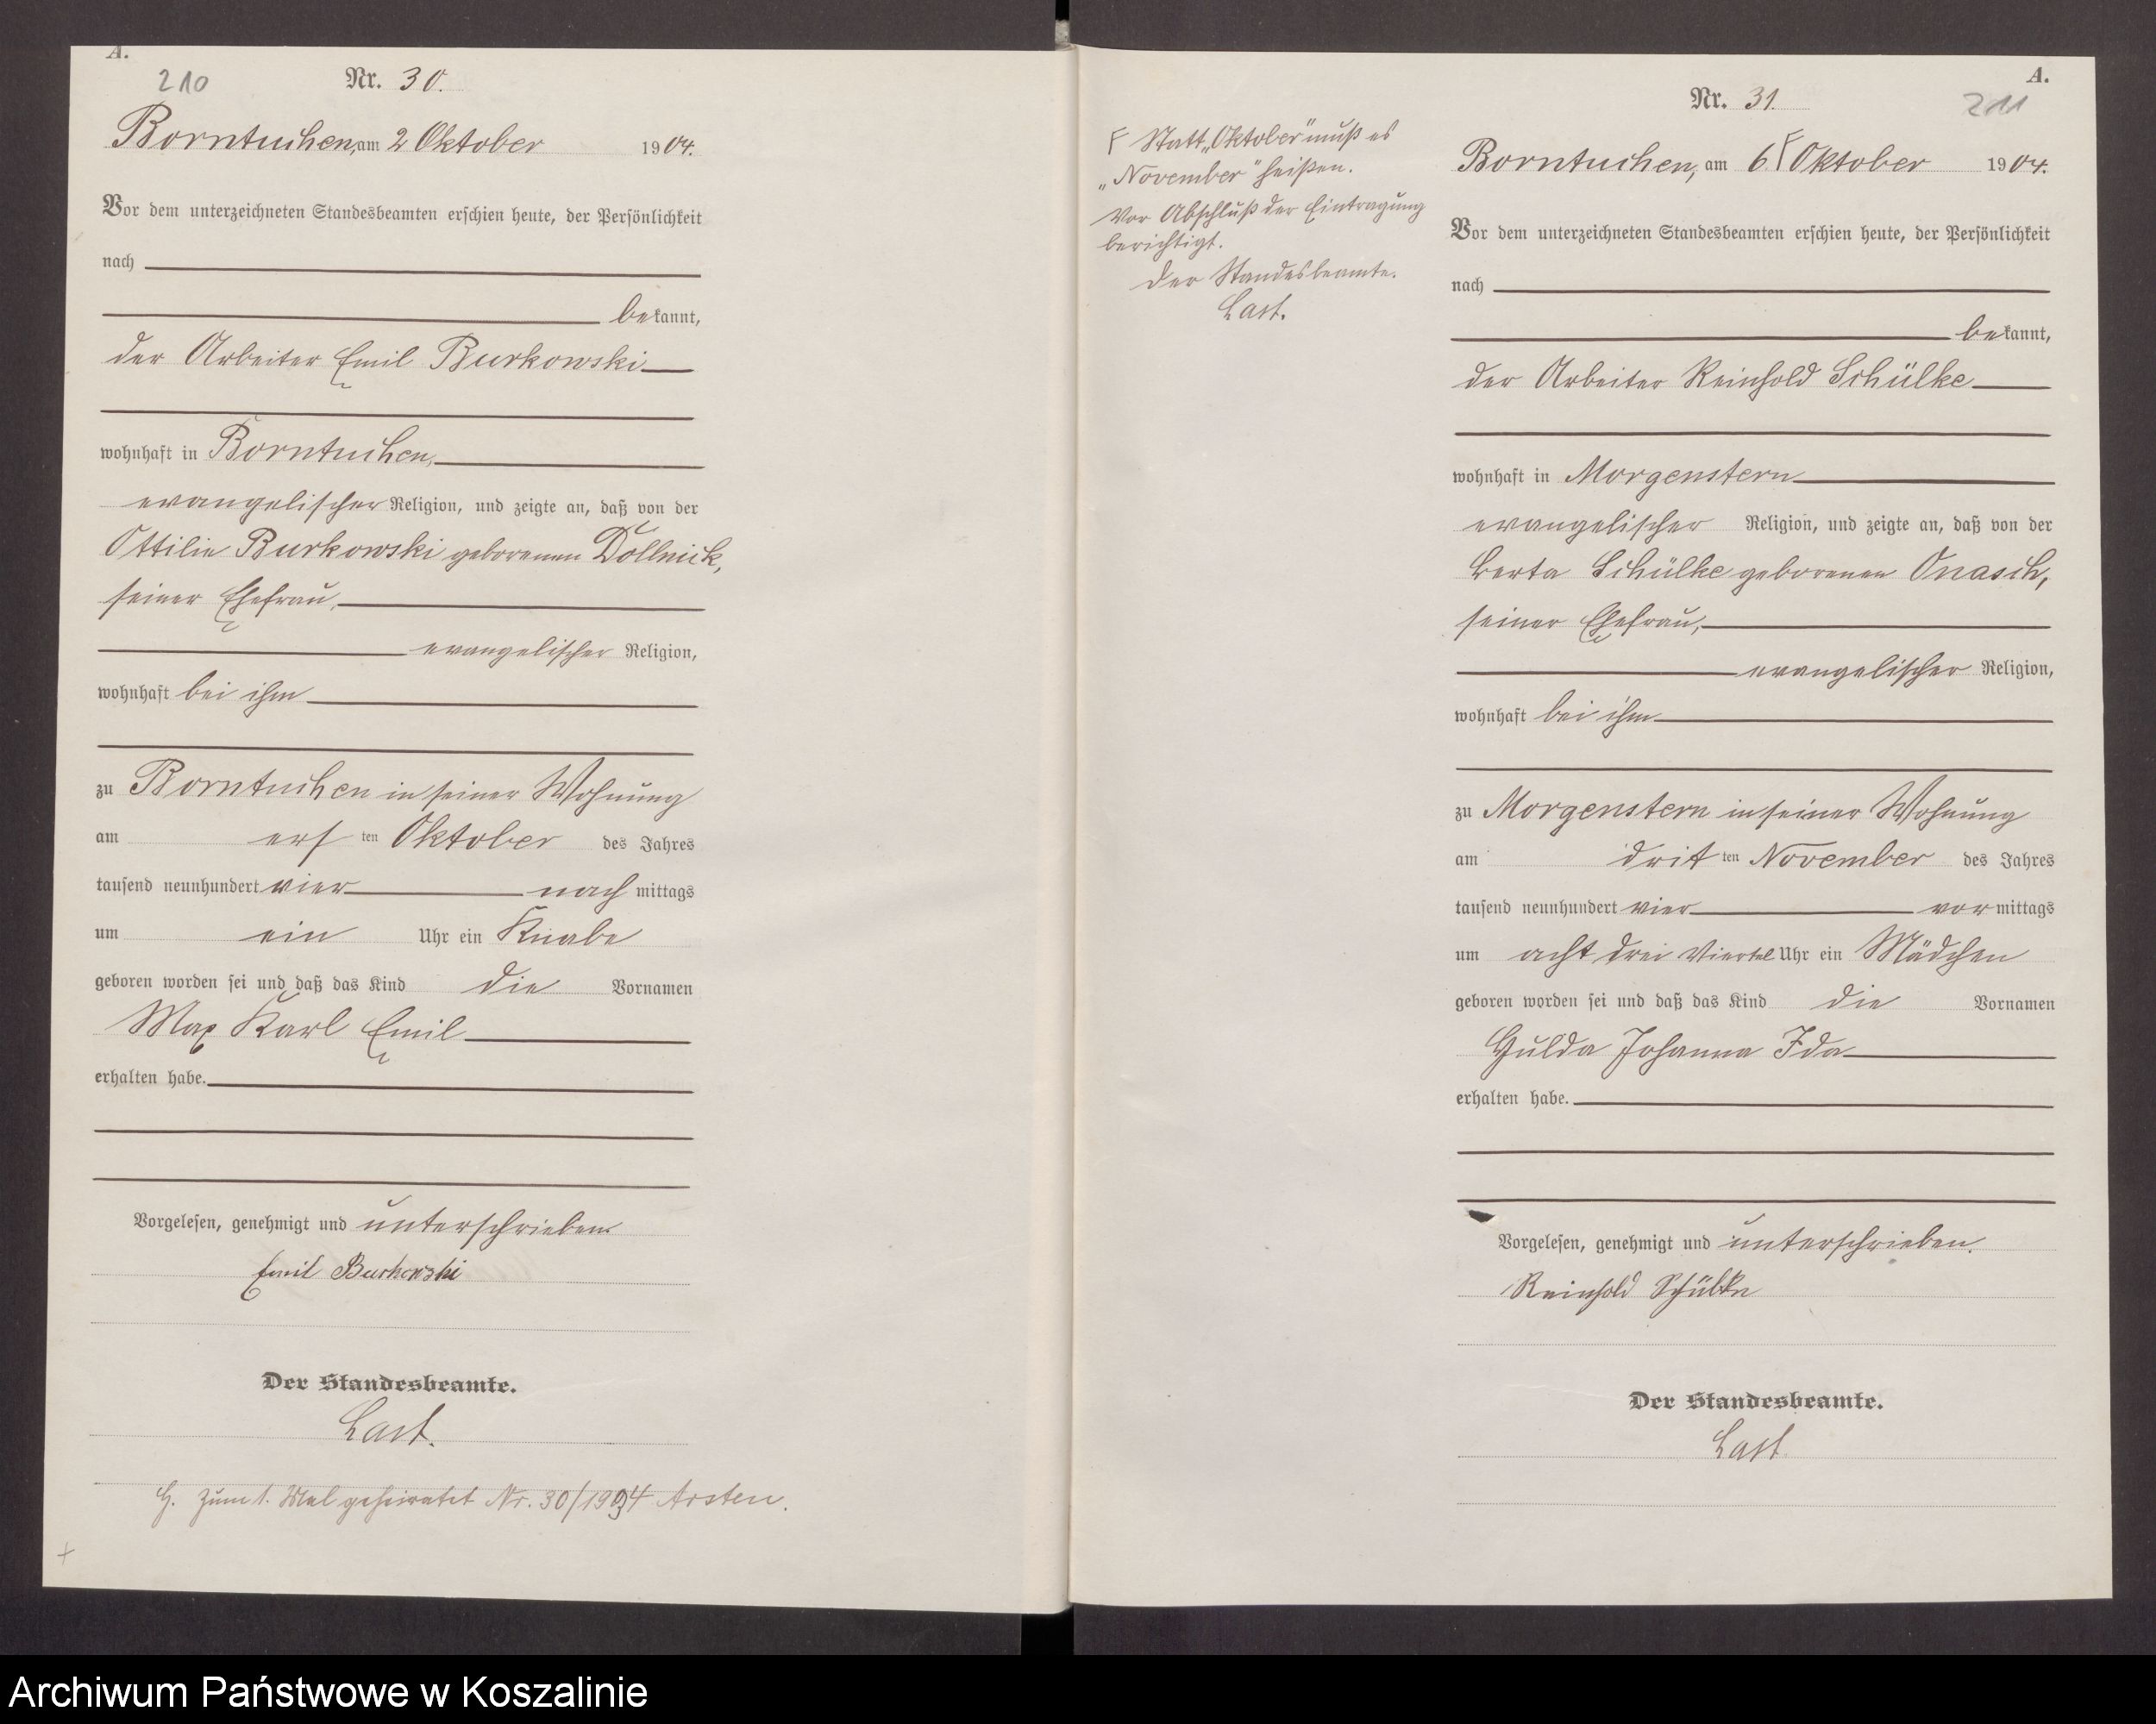 A.
210
Nr. 30.
Borntuchen, am 2 Oktober 1904.
Vor dem unterzeichneten Standesbeamten erschien heute, der Persönlichkeit
nach
bekannt,
der Arbeiter Emil Burkowski
wohnhaft in Borntuchen,
evangelischer Religion, und zeigte an, daß von der
Ottilie Burkowski geborenen Dollnick,
seiner Ehefrau,
evangelischer Religion,
wohnhaft bei ihm
zu Borntuchen in seiner Wohnung
am ersten Oktober des Jahres
tausend neunhundert vier nachmittags
um ein Uhr ein Knabe
geboren worden sei und daß das Kind die Vornamen
Max Karl Emil
erhalten habe.
Vorgelesen, genehmigt und unterschrieben.
Emil Burkowski
Der Standesbeamte.
Last.
H. Zum 1. Mal geheiratet Nr. 30/1934 Arsten.
A.
Nr. 31.
211
F Statt „Oktober" muß es
„November" heißen.
Vor Abschluß der Eintragung
berichtigt.
Der Standesbeamte.
Last.
Borntuchen, am 6. F Oktober 1904.
Vor dem unterzeichneten Standesbeamten erschien heute, der Persönlichkeit
nach
bekannt,
der Arbeiter Reinhold Schülke
wohnhaft in Morgenstern
evangelischer Religion, und zeigte an, daß von der
Berta Schülke geborenen Onasch,
seiner Ehefrau,
evangelischer Religion,
wohnhaft bei ihm
zu Morgenstern in seiner Wohnung
am dritten November des Jahres
tausend neunhundert vier vormittags
um acht drei Viertel Uhr ein Mädchen
geboren worden sei und daß das Kind die Vornamen
Hulda Johanna Ida
erhalten habe.
Vorgelesen, genehmigt und unterschrieben.
Reinhold Schülke
Der Standesbeamte.
Last
Archiwum Państwowe w Koszalinie